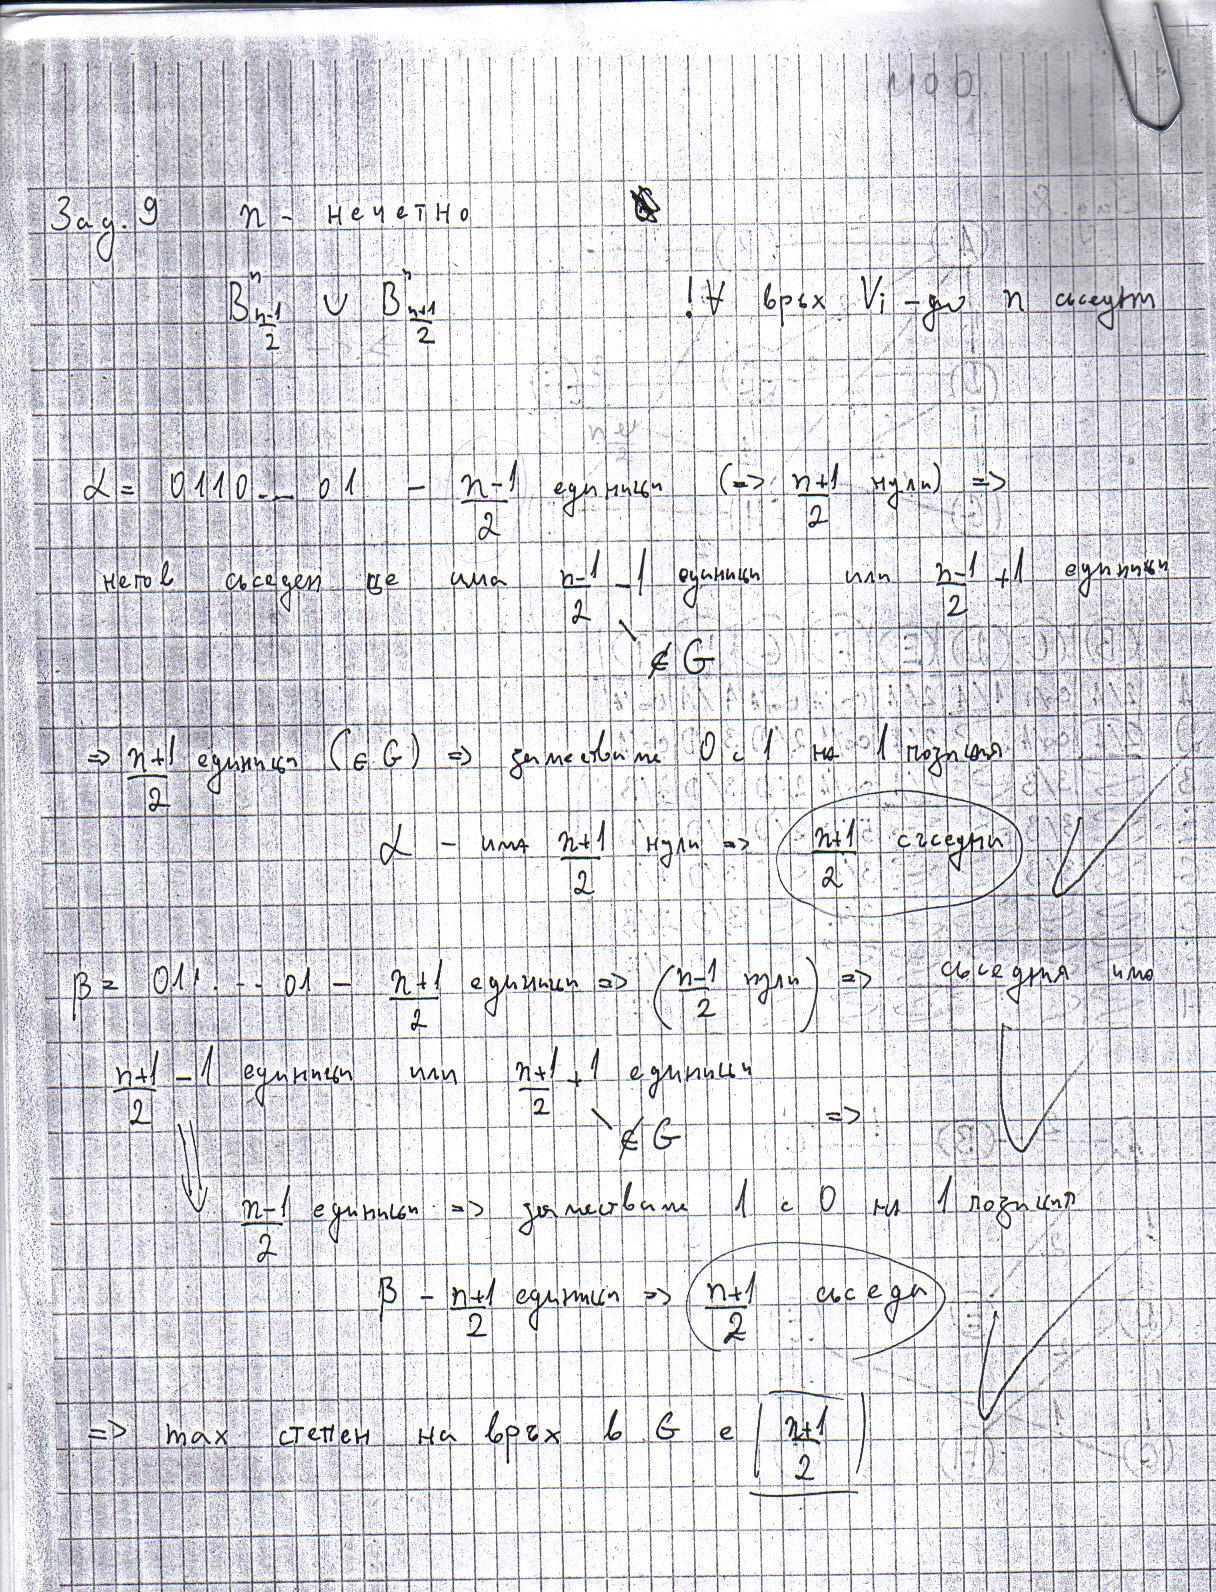 Зад. 9 n - нечетно
B^n_{\frac{n-1}{2}} ∪ B^n_{\frac{n+1}{2}} ! ∀ връх Vi - до n съседи
α = 0110...01 - \frac{n-1}{2} единици (=> \frac{n+1}{2} нули) =>
негов съседен ще има \frac{n-1}{2} - 1 единици или \frac{n-1}{2} + 1 единици
∉ G
=> \frac{n+1}{2} единици (∈ G) => заместваме 0 с 1 на 1 позиция
α - има \frac{n+1}{2} нули => \frac{n+1}{2} съседни
β = 011...01 - \frac{n+1}{2} единици => (\frac{n-1}{2} нули) => съседния има
\frac{n+1}{2} - 1 единици или \frac{n+1}{2} + 1 единици
∉ G =>
\frac{n-1}{2} единици => заместваме 1 с 0 на 1 позиция
β - \frac{n+1}{2} единици => \frac{n+1}{2} съседи
=> max степен на връх в G е \frac{n+1}{2}